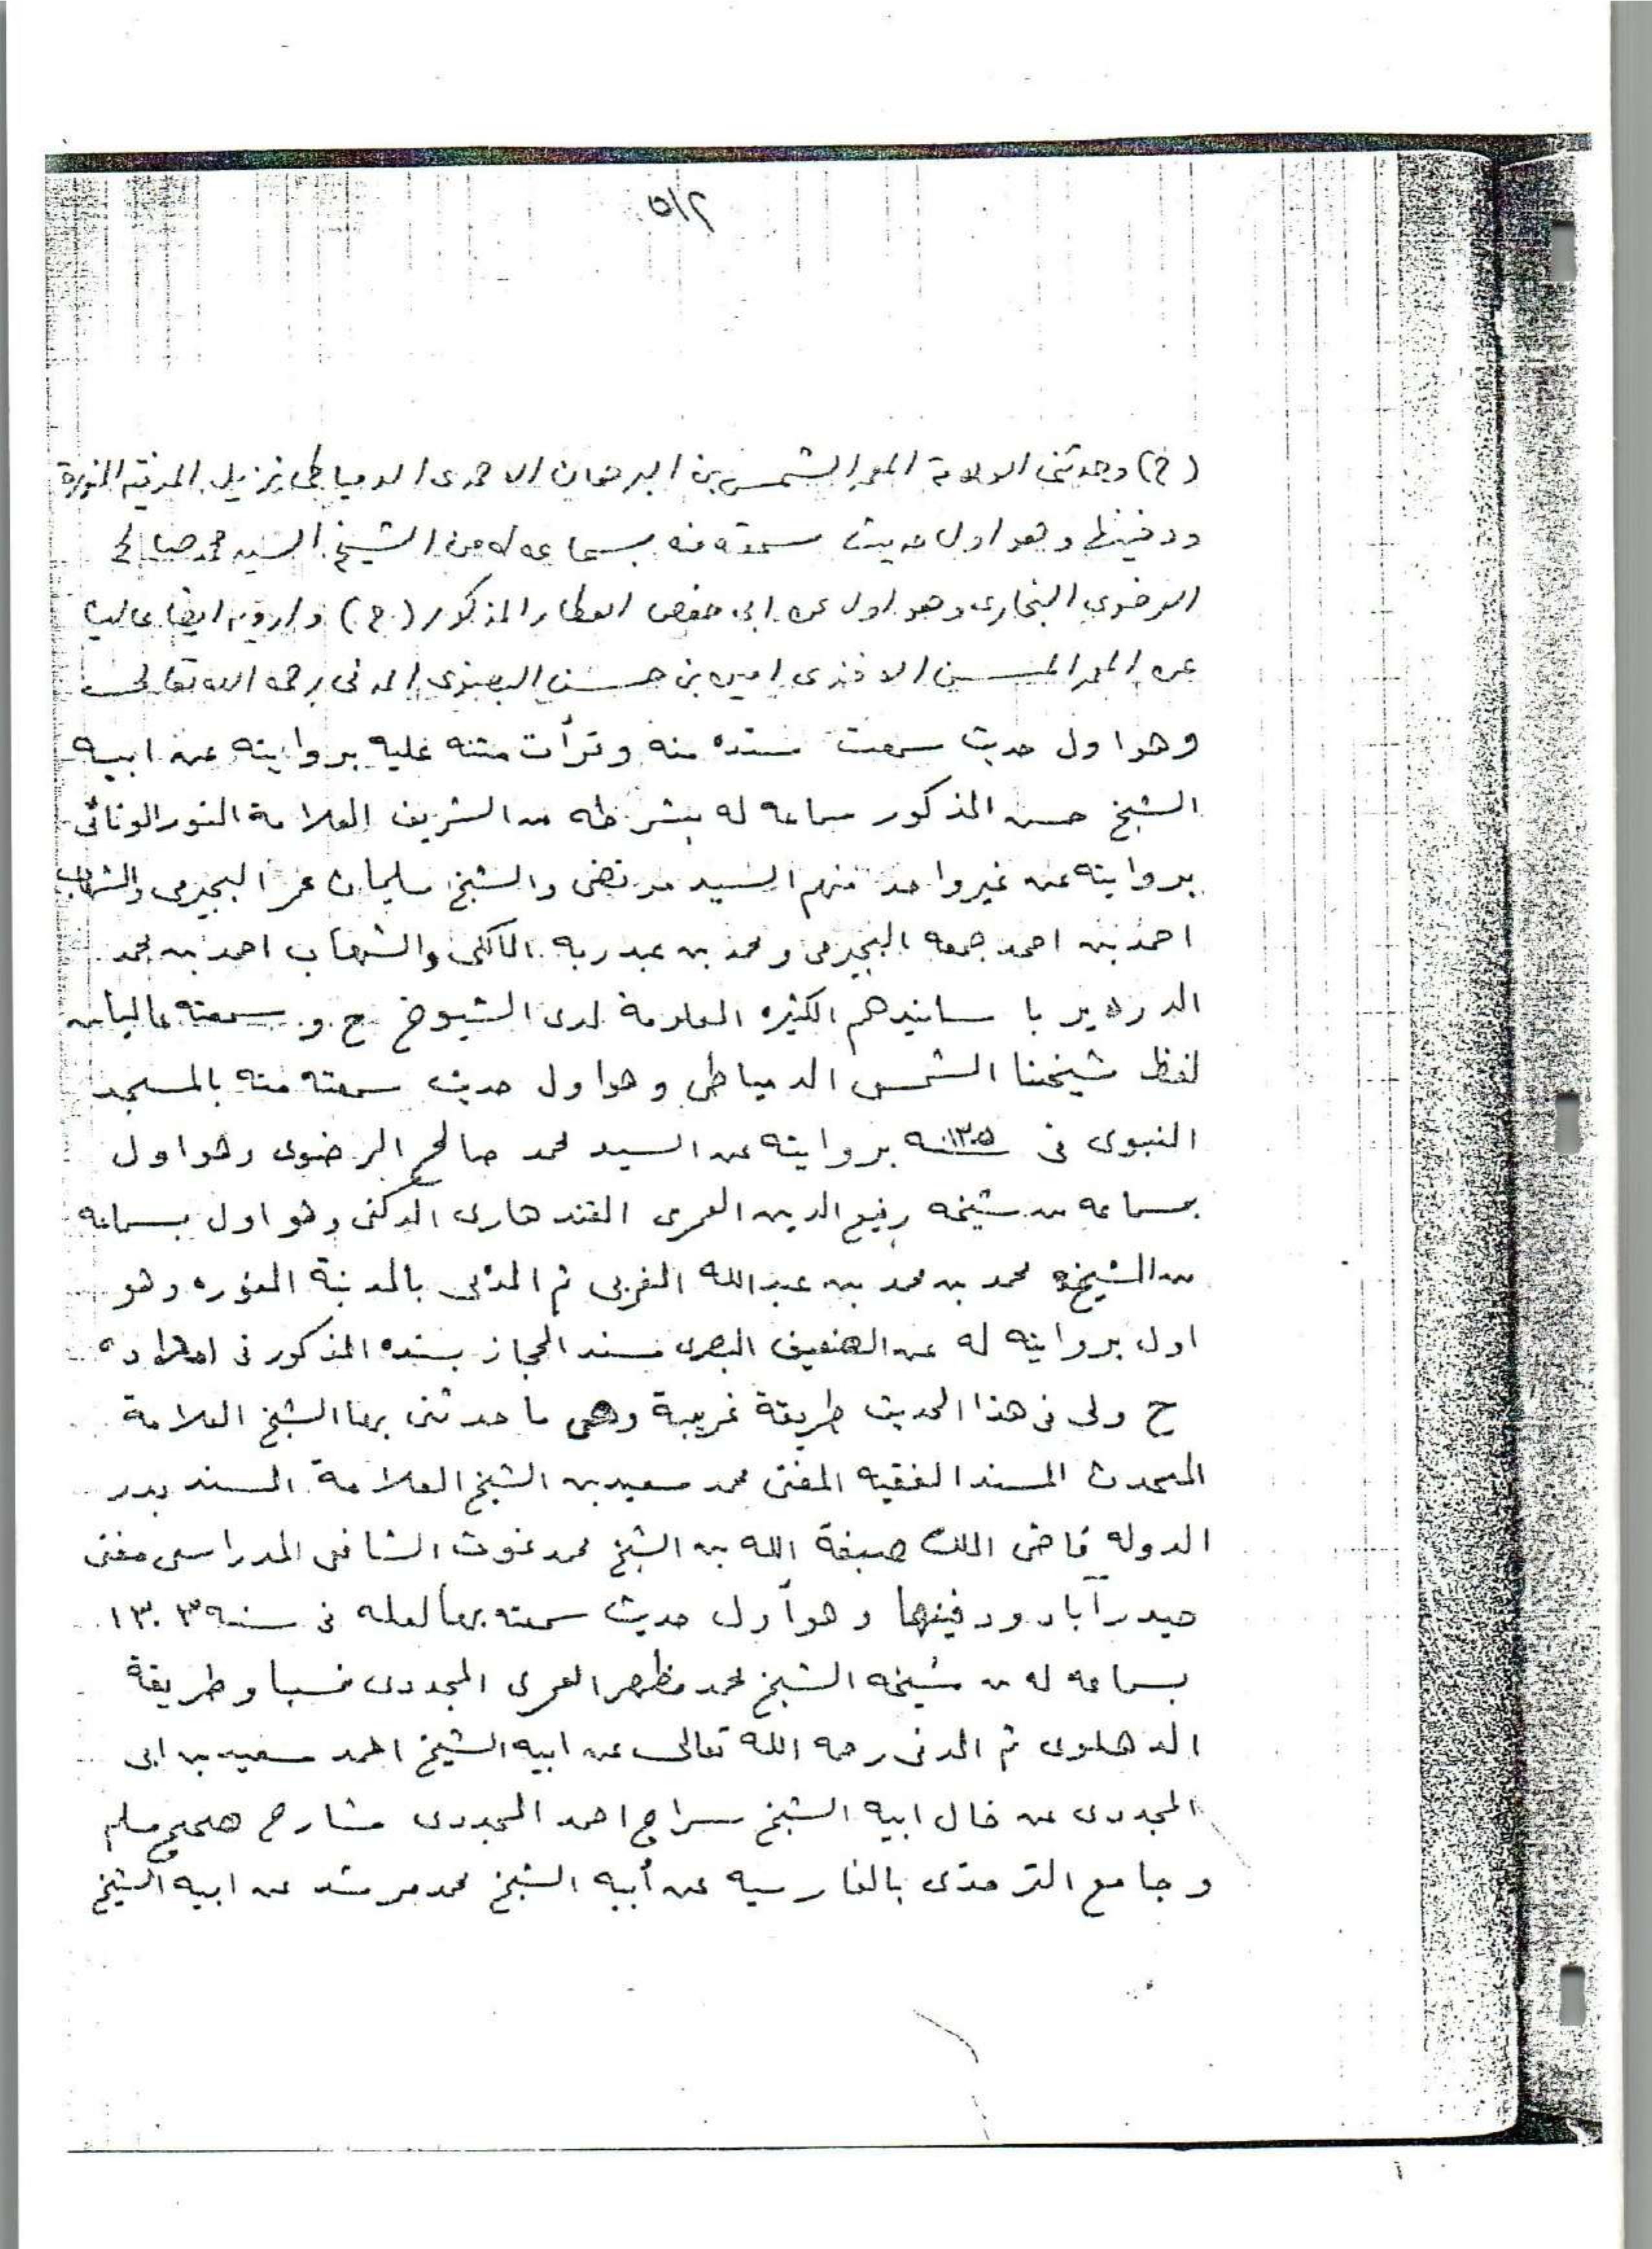 ٥/٢
(ح) وحدثني العلامة المعمر الشمس بن البرهان الاحمدى الدمياطى نزيل المدينة المنورة
ودفينها وهو اول حديث سمعته منه بسماعه له من الشيخ السيد محمد صالح
الرضوي البخارى وهو اول عن ابى حفص العطار المذكور (ح) وارويه ايضا عاليا
عن المعمر المسن الافندى امين بن حسن المدنى رحمه الله تعالى
وهو اول حديث سمعت سنده منه وقرأت متنه عليه بروايته عن ابيه
الشيخ حسن المذكور سماعه له بشرطه من الشريف العلامة النور الونائى
بروايته عن غير واحد منهم السيد مرتضى والشيخ سليمان عمر البجيرمى والشهاب
احمد بن احمد جمعه البجيرمى ومحمد بن عبد ربه المالكى والشهاب احمد بن محمد
الدردير با سانيدهم الكثيره المعلومة لدى الشيوخ ح و سمعته عاليا من
لفظ شيخنا الشمس الدمياطى وهو اول حديث سمعته منه بالمسجد
النبوى فى سنه ١٣٠٥ بروايته عن السيد محمد صالح الرضوى وهو اول
بسماعه من شيخه رفيع الدين العمرى القندهارى الدكنى وهو اول بسماعه
من الشيخ محمد بن محمد بن عبد الله المغربى ثم المدنى بالمدينة المنوره وهو
اول بروايته له عن البصرى مسند الحجاز بسنده المذكور فى امداده
ح ولى فى هذا الحديث طريقة غريبة وهى ما حدثنى بها الشيخ العلامة
المحدث المسند الفقيه المفتى محمد سعيد بن الشيخ العلامة المسند بدر
الدوله قاضى الملك صبغة الله بن الشيخ محمد غوث الشافعى المدراسى مفتى
حيدر آباد ودفينها وهو أول حديث سمعته بها لعله فى سنه ١٣٠٣
بسماعه له من شيخه الشيخ محمد مظهر العمرى المجددى نسبا وطريقة
الدهلوى ثم المدنى رحمه الله تعالى عن ابيه الشيخ احمد سعيد بن ابى
المجددى عن خال ابيه الشيخ سراج احمد المجددى شارح صحيح مسلم
وجامع الترمذى بالفارسيه عن أبيه الشيخ محمد مرشد عن ابيه الشيخ